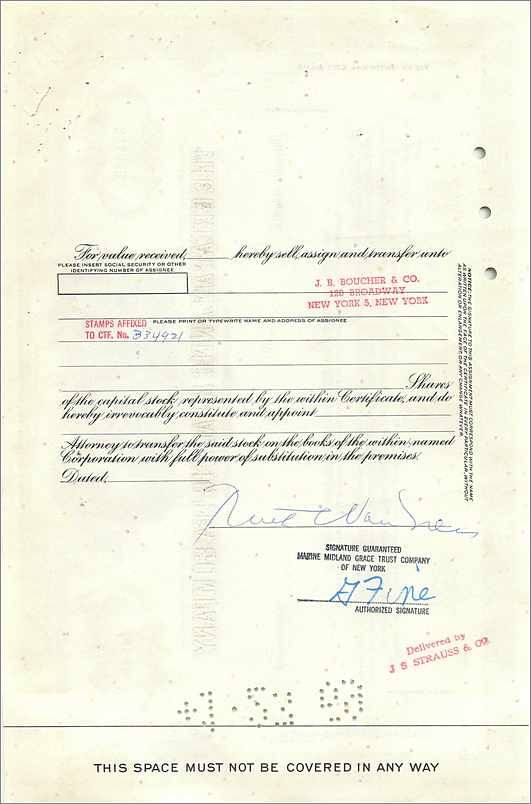 For value received, hereby sell, assign and transfer unto
PLEASE INSERT SOCIAL SECURITY OR OTHER
IDENTIFYING NUMBER OF ASSIGNEE
J. B. BOUCHER & CO.
120 BROADWAY
NEW YORK 5, NEW YORK
PLEASE PRINT OR TYPEWRITE NAME AND ADDRESS OF ASSIGNEE
STAMPS AFFIXED
TO CTF. No. 334921
Shares
of the capital stock represented by the within Certificate, and do
hereby irrevocably constitute and appoint
Attorney to transfer the said stock on the books of the within named
Corporation with full power of substitution in the premises.
Dated,
NOTICE: THE SIGNATURE TO THIS ASSIGNMENT MUST CORRESPOND WITH THE NAME
AS WRITTEN UPON THE FACE OF THE CERTIFICATE IN EVERY PARTICULAR, WITHOUT
ALTERATION OR ENLARGEMENT OR ANY CHANGE WHATEVER.
SIGNATURE GUARANTEED
MARINE MIDLAND GRACE TRUST COMPANY
OF NEW YORK
G Fine
AUTHORIZED SIGNATURE
Delivered by
J S STRAUSS & CO.
THIS SPACE MUST NOT BE COVERED IN ANY WAY